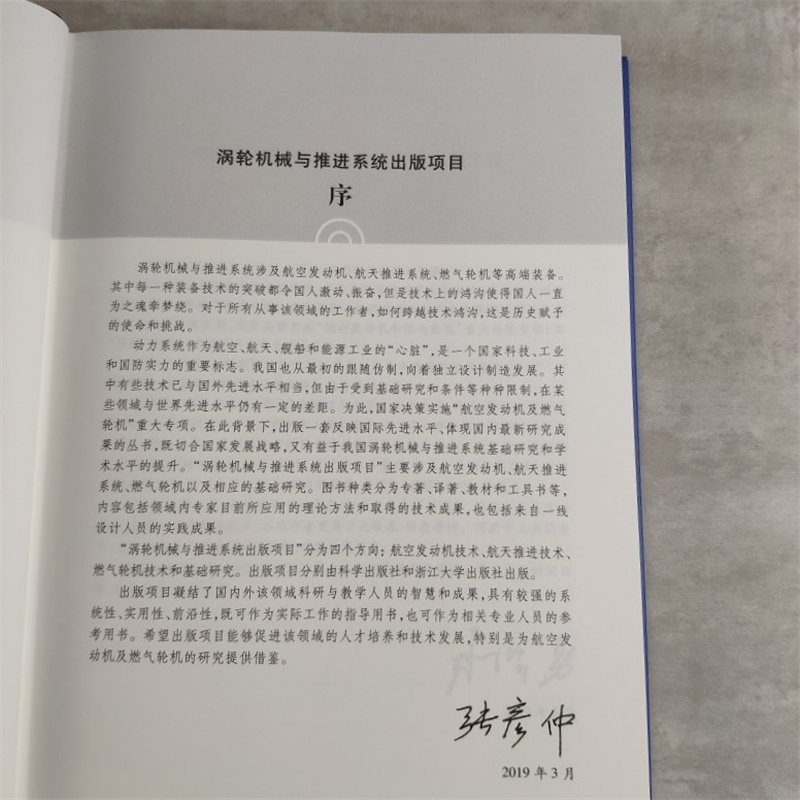 涡轮机械与推进系统出版项目
序
涡轮机械与推进系统涉及航空发动机、航天推进系统、燃气轮机等高端装备。
其中每一种装备技术的突破都令国人激动、振奋,但是技术上的鸿沟使得国人一直
为之魂牵梦绕。对于所有从事该领域的工作者,如何跨越技术鸿沟,这是历史赋予
的使命和挑战。
动力系统作为航空、航天、舰船和能源工业的“心脏”,是一个国家科技、工业
和国防实力的重要标志。我国也从最初的跟随仿制,向着独立设计制造发展。其
中有些技术已与国外先进水平相当,但由于受到基础研究和条件等种种限制,在某
些领域与世界先进水平仍有一定的差距。为此,国家决策实施“航空发动机及燃气
轮机”重大专项。在此背景下,出版一套反映国际先进水平、体现国内最新研究成
果的丛书,既切合国家发展战略,又有益于我国涡轮机械与推进系统基础研究和学
术水平的提升。“涡轮机械与推进系统出版项目”主要涉及航空发动机、航天推进
系统、燃气轮机以及相应的基础研究。图书种类分为专著、译著、教材和工具书等,
内容包括领域内专家目前所应用的理论方法和取得的技术成果,也包括来自一线
设计人员的实践成果。
“涡轮机械与推进系统出版项目”分为四个方向:航空发动机技术、航天推进技术、
燃气轮机技术和基础研究。出版项目分别由科学出版社和浙江大学出版社出版。
出版项目凝结了国内外该领域科研与教学人员的智慧和成果,具有较强的系
统性、实用性、前沿性,既可作为实际工作的指导用书,也可作为相关专业人员的参
考用书。希望出版项目能够促进该领域的人才培养和技术发展,特别是为航空发
动机及燃气轮机的研究提供借鉴。
张彦仲
2019年3月